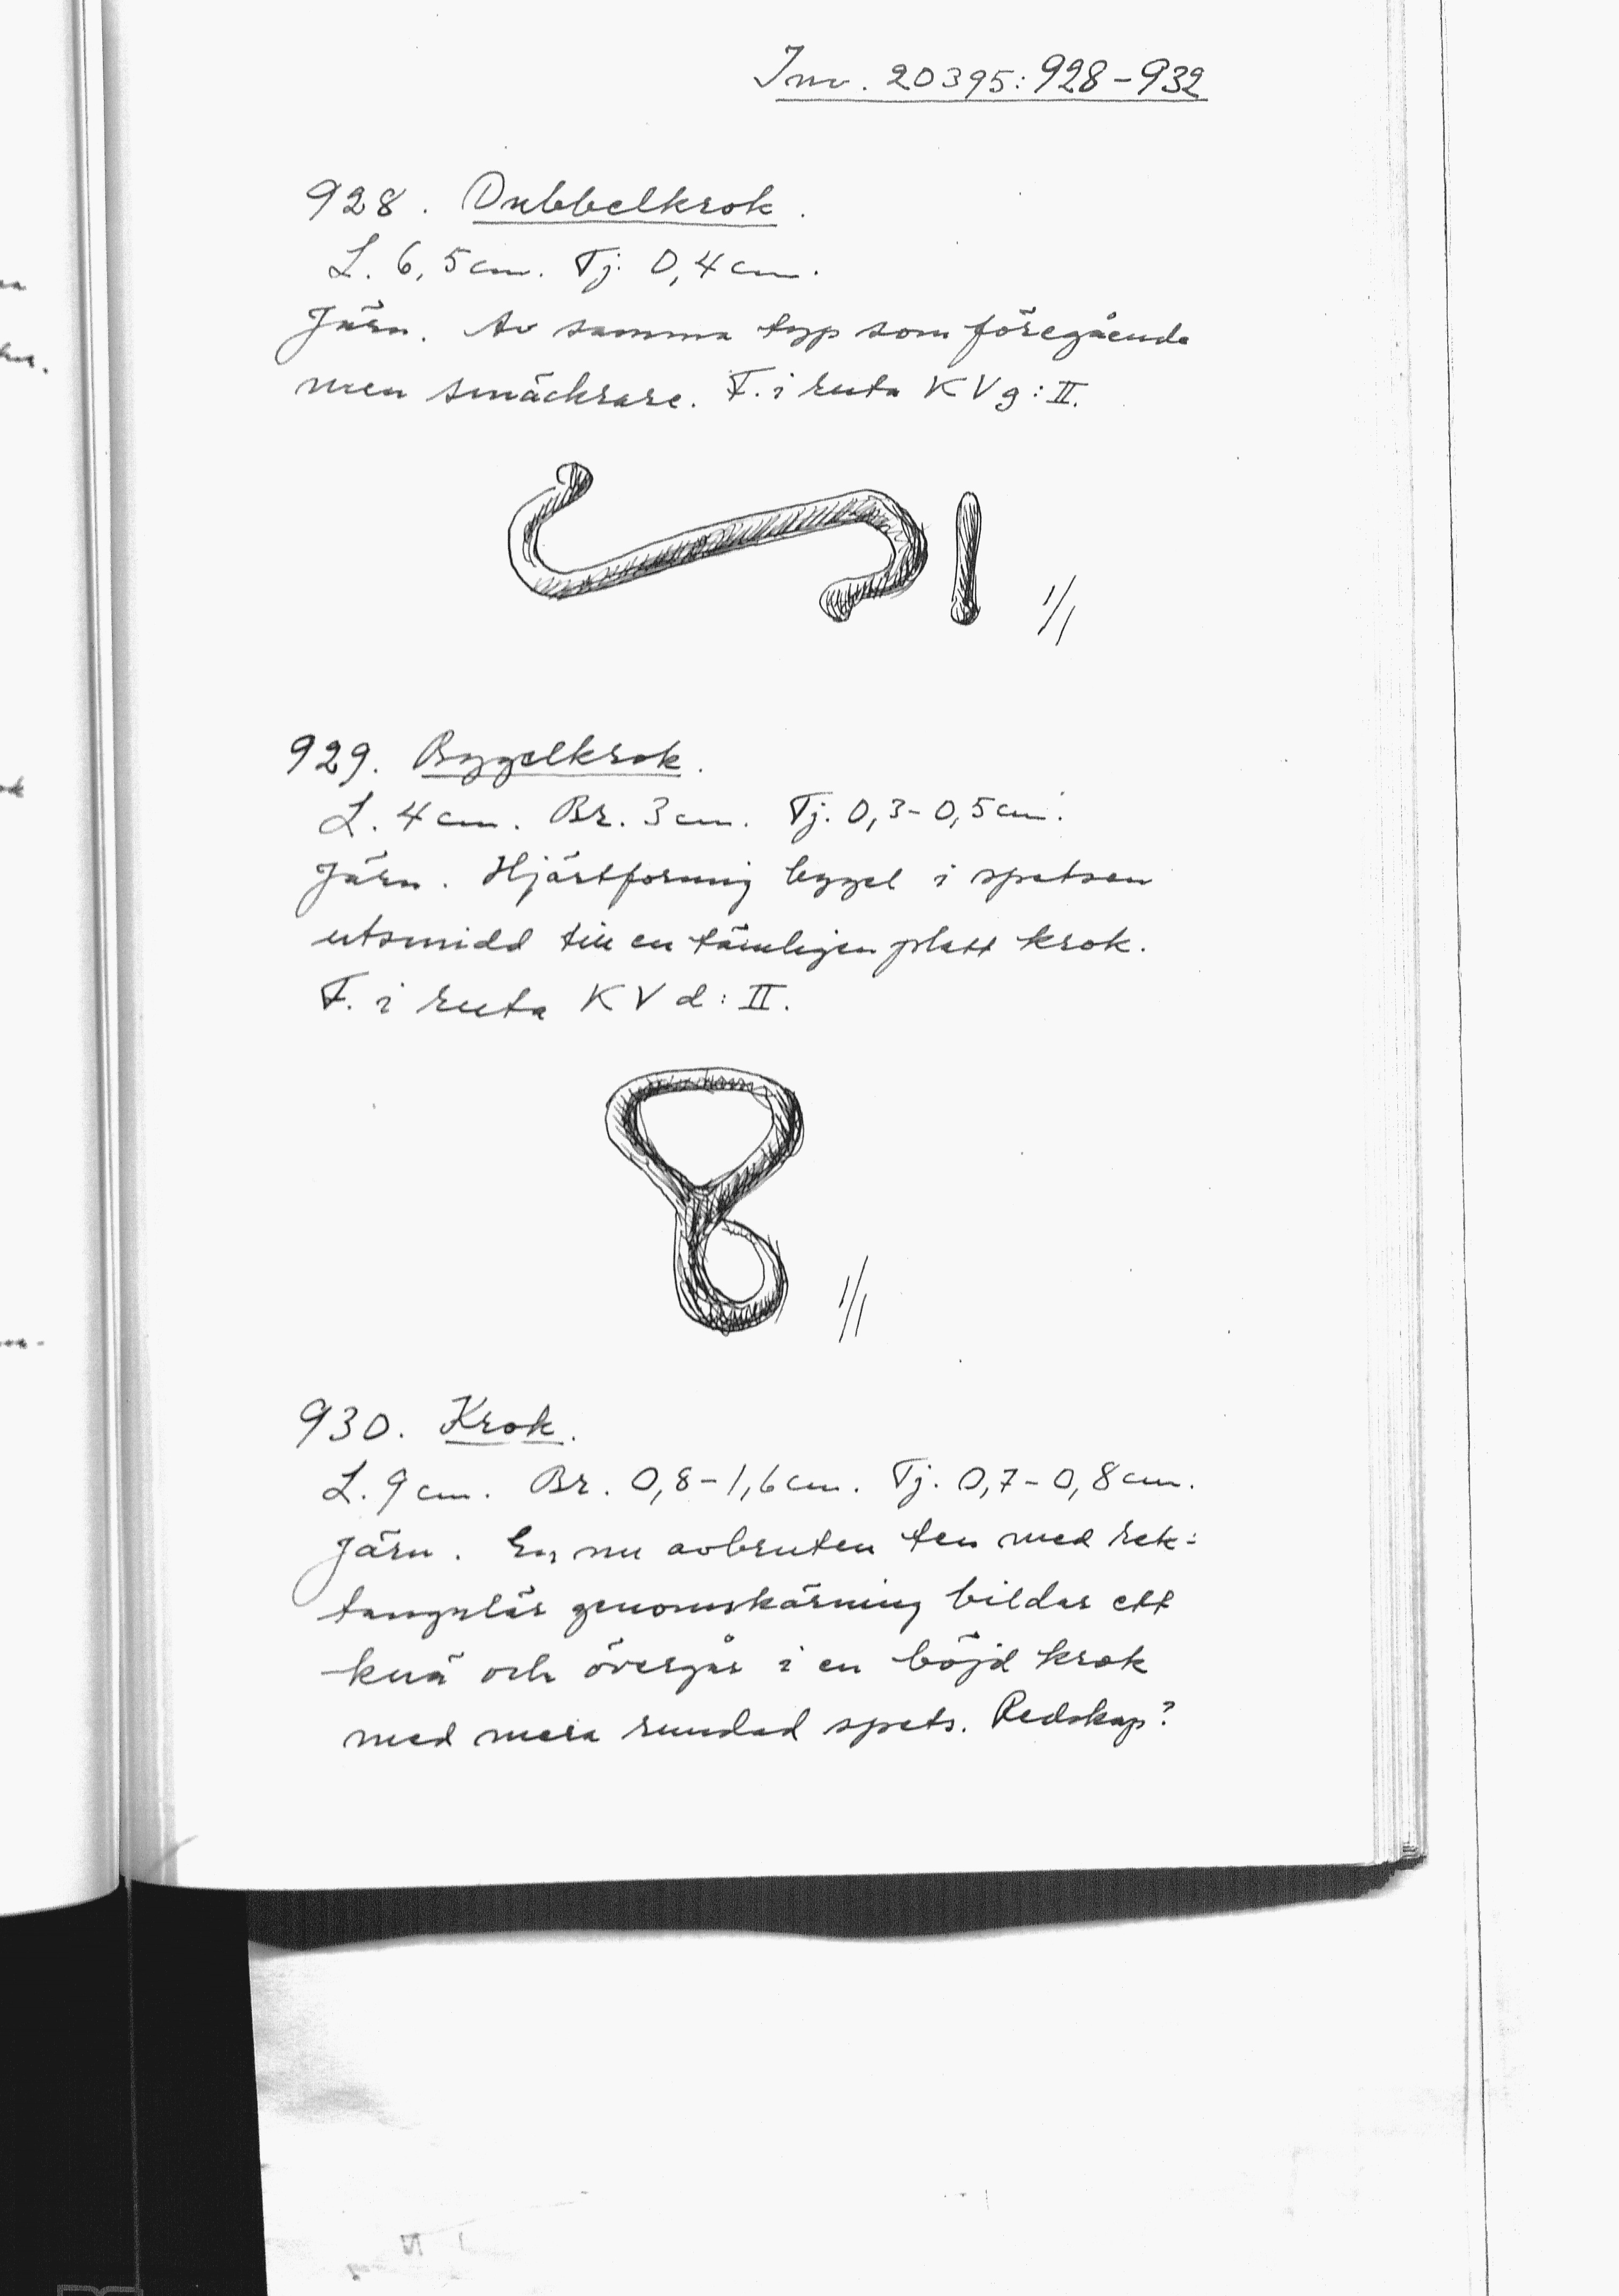 Inv. 20395:928-932
928. Dubbelkrok.
L. 6,5 cm. Tj. 0,4 cm.
Järn. Av samma typ som föregående
men smäckrare. F. i ruta KVg:II.
1/1
929. Bygelkrok.
L. 4 cm. Br. 3 cm. Tj. 0,3-0,5 cm.
Järn. Hjärtformig bygel i spetsen
utsmidd till en tämligen platt krok.
F. i ruta KVd:II.
1/1
930. Krok.
L. 9 cm. Br. 0,8-1,6 cm. Tj. 0,7-0,8 cm.
Järn. En nu avbruten ten med rek=
tangulär genomskärning bildar ett
knä och övergår i en böjd krok
med mera rundad spets. Redskap?